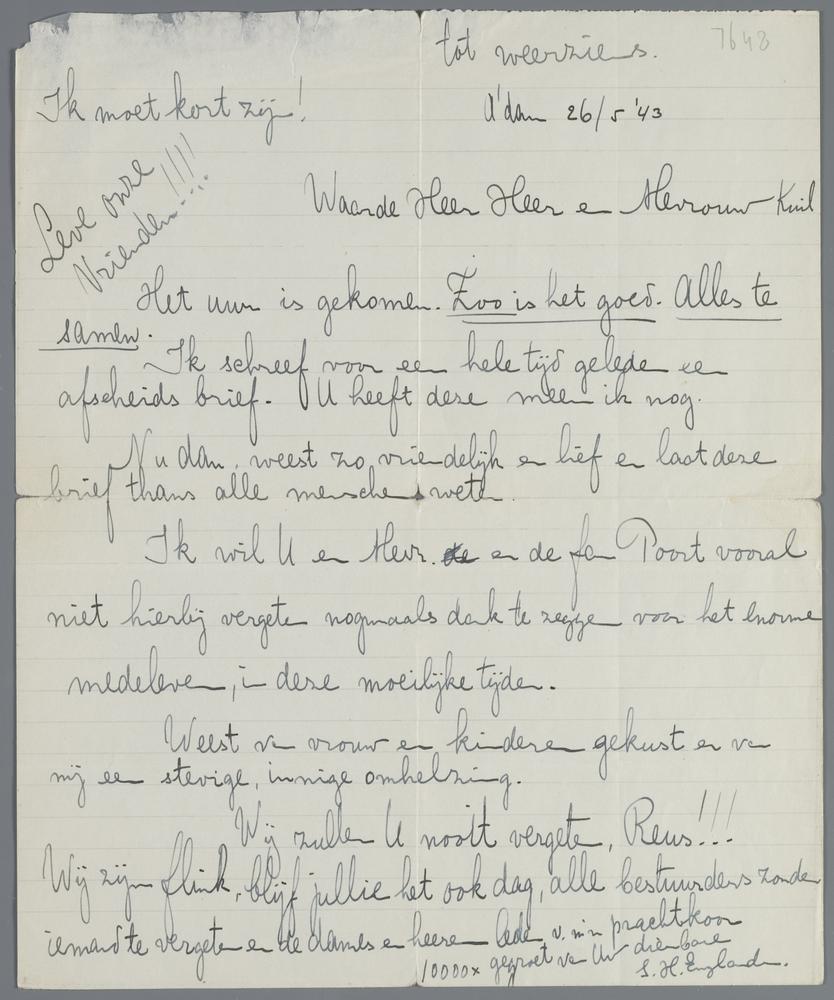 tot weerziens.
7648
Ik moet kort zijn!
A'dam 26/5 '43
Leve onze
Vrienden!!!!
Waarde Heer Heer en Mevrouw Kuil
Het uur is gekomen. Zoo is het goed. Alles te
samen.
Ik schreef voor een hele tijd geleden een
afscheids brief. U heeft deze meen ik nog.
Nu dan, weest zo vriendelijk en lief en laat deze
brief thans alle menschen weten.
Ik wil U en Mevr. en de fam Poort vooral
niet hierbij vergeten nogmaals dank te zeggen voor het enorme
medeleven, in deze moeilijke tijden.
Weest van vrouw en kinderen gekust en van
mij een stevige, innige omhelzing.
Wij zullen U nooit vergeten, Reus!!!
Wij zijn flink, blijf jullie het ook dag, alle bestuurders zonder
iemand te vergeten en de dames en heeren leden v. mijn prachtkoor
10000x gegroet van Uw dienbare
S. H. Englander.